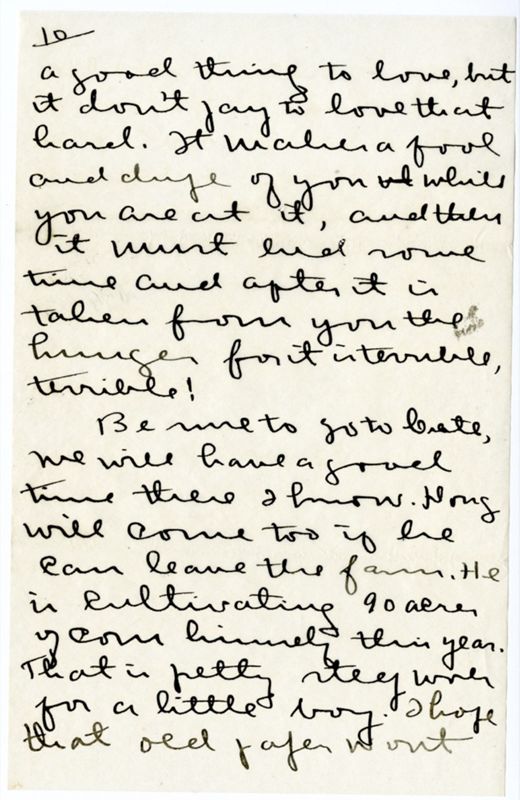 10
a good thing to love, but
it don't pay to love that
hard. It makes a fool
and dupe of you while
you are at it, and then
it must end some
time and after it is
taken from you the
hunger for it is terrible,
terrible!
Be sure to go to
we will have a good
time there I know. Hong
will come too if he
can leave the farm. He
is cultivating 90 acres
of corn himself this year.
That is petty work
for a little boy. I hope
that old paper wont